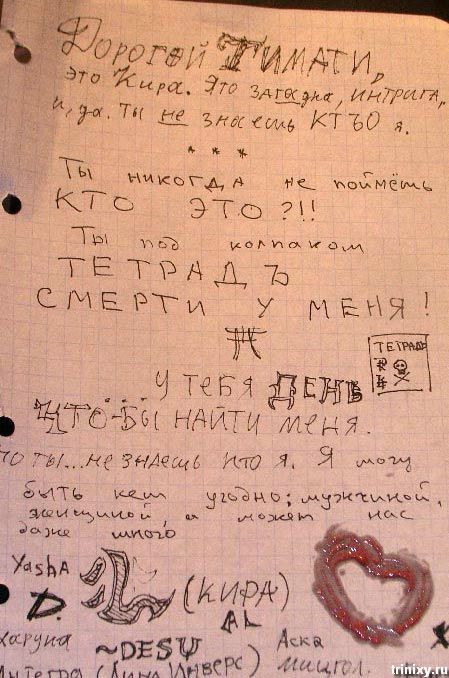 Дорогой Тимати,
это Кира. Это загадка, интрига,
и, да. Ты не знаешь КТЪО я.
* * *
Ты никогда не поймёшь
КТО ЭТО?!!
Ты под колпаком
ТЕТРАДЬ
СМЕРТИ У МЕНЯ!
ТЕТРАДЬ
У тебя ДЕНЬ
ЧТО-БЫ НАЙТИ меня.
но ты... не знаешь кто я. Я могу
быть кем угодно: мужчиной,
женщиной, а может нас
даже много
YashA
L (КИРА)
D. AL
Харуна ~DESU Аска
Интегра (Лина Инверс)
trinixy.ru